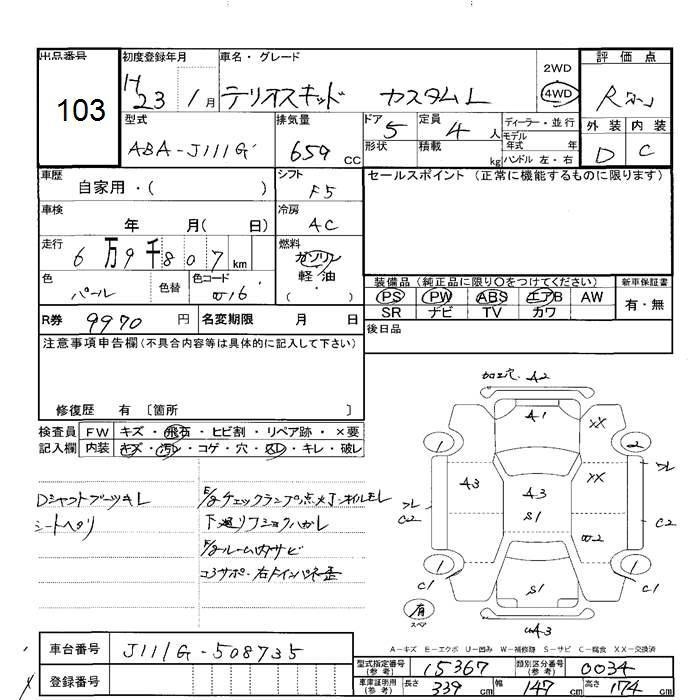 出品番号 初度登録年月 車名・グレード 2WD 評価点
103 H 23 1月 テリオスキッド カスタムL 4WD R
型式 排気量 ドア 定員 ディーラー・並行 外装 内装
ABA-J111G 659 CC 5 4人 モデル年式 年 D C
形状 積載 kg ハンドル 左・右
車歴 シフト セールスポイント (正常に機能するものに限ります)
自家用・( ) F5
車検 冷房
年 月( 日) AC
走行 燃料
6万9千807km ガソリン
色 色替 色コード 軽・油
パール W16 ( )
装備品 (純正品に限り〇をつけてください) 新車保証書
PS PW ABS エアB AW 有・無
SR ナビ TV カワ
R券 9970 円 名変期限 月 日 後日品
注意事項申告欄(不具合内容等は具体的に記入して下さい)
修復歴 有 〔箇所 〕
検査員 FW キズ・飛石・ヒビ割・リペア跡・×要
記入欄 内装 キズ・汚れ・コゲ・穴・スレ・キレ・破レ
加工穴・A2
A1 XX
1 2
XX
A3 A3 フレ
フレ C2 S1 C2
W2
1 1
C1 S1 C1
有 スペア
A3
Dシャフトブーツキレ E/gチェックランプ点メ
シートヘタリ 下廻リフショクハガレ
E/gルーム内サビ
コアサポ・右Fインパネ歪
A−キズ E−エクボ U−凹み W−補修跡 S−サビ C−腐食 XX−交換済
車台番号 J111G-508735
登録番号
型式指定番号(参考) 15367 類別区分番号(参考) 0034
車庫証明用(参考) 長さ 339 cm 幅 147 cm 高さ 174 cm